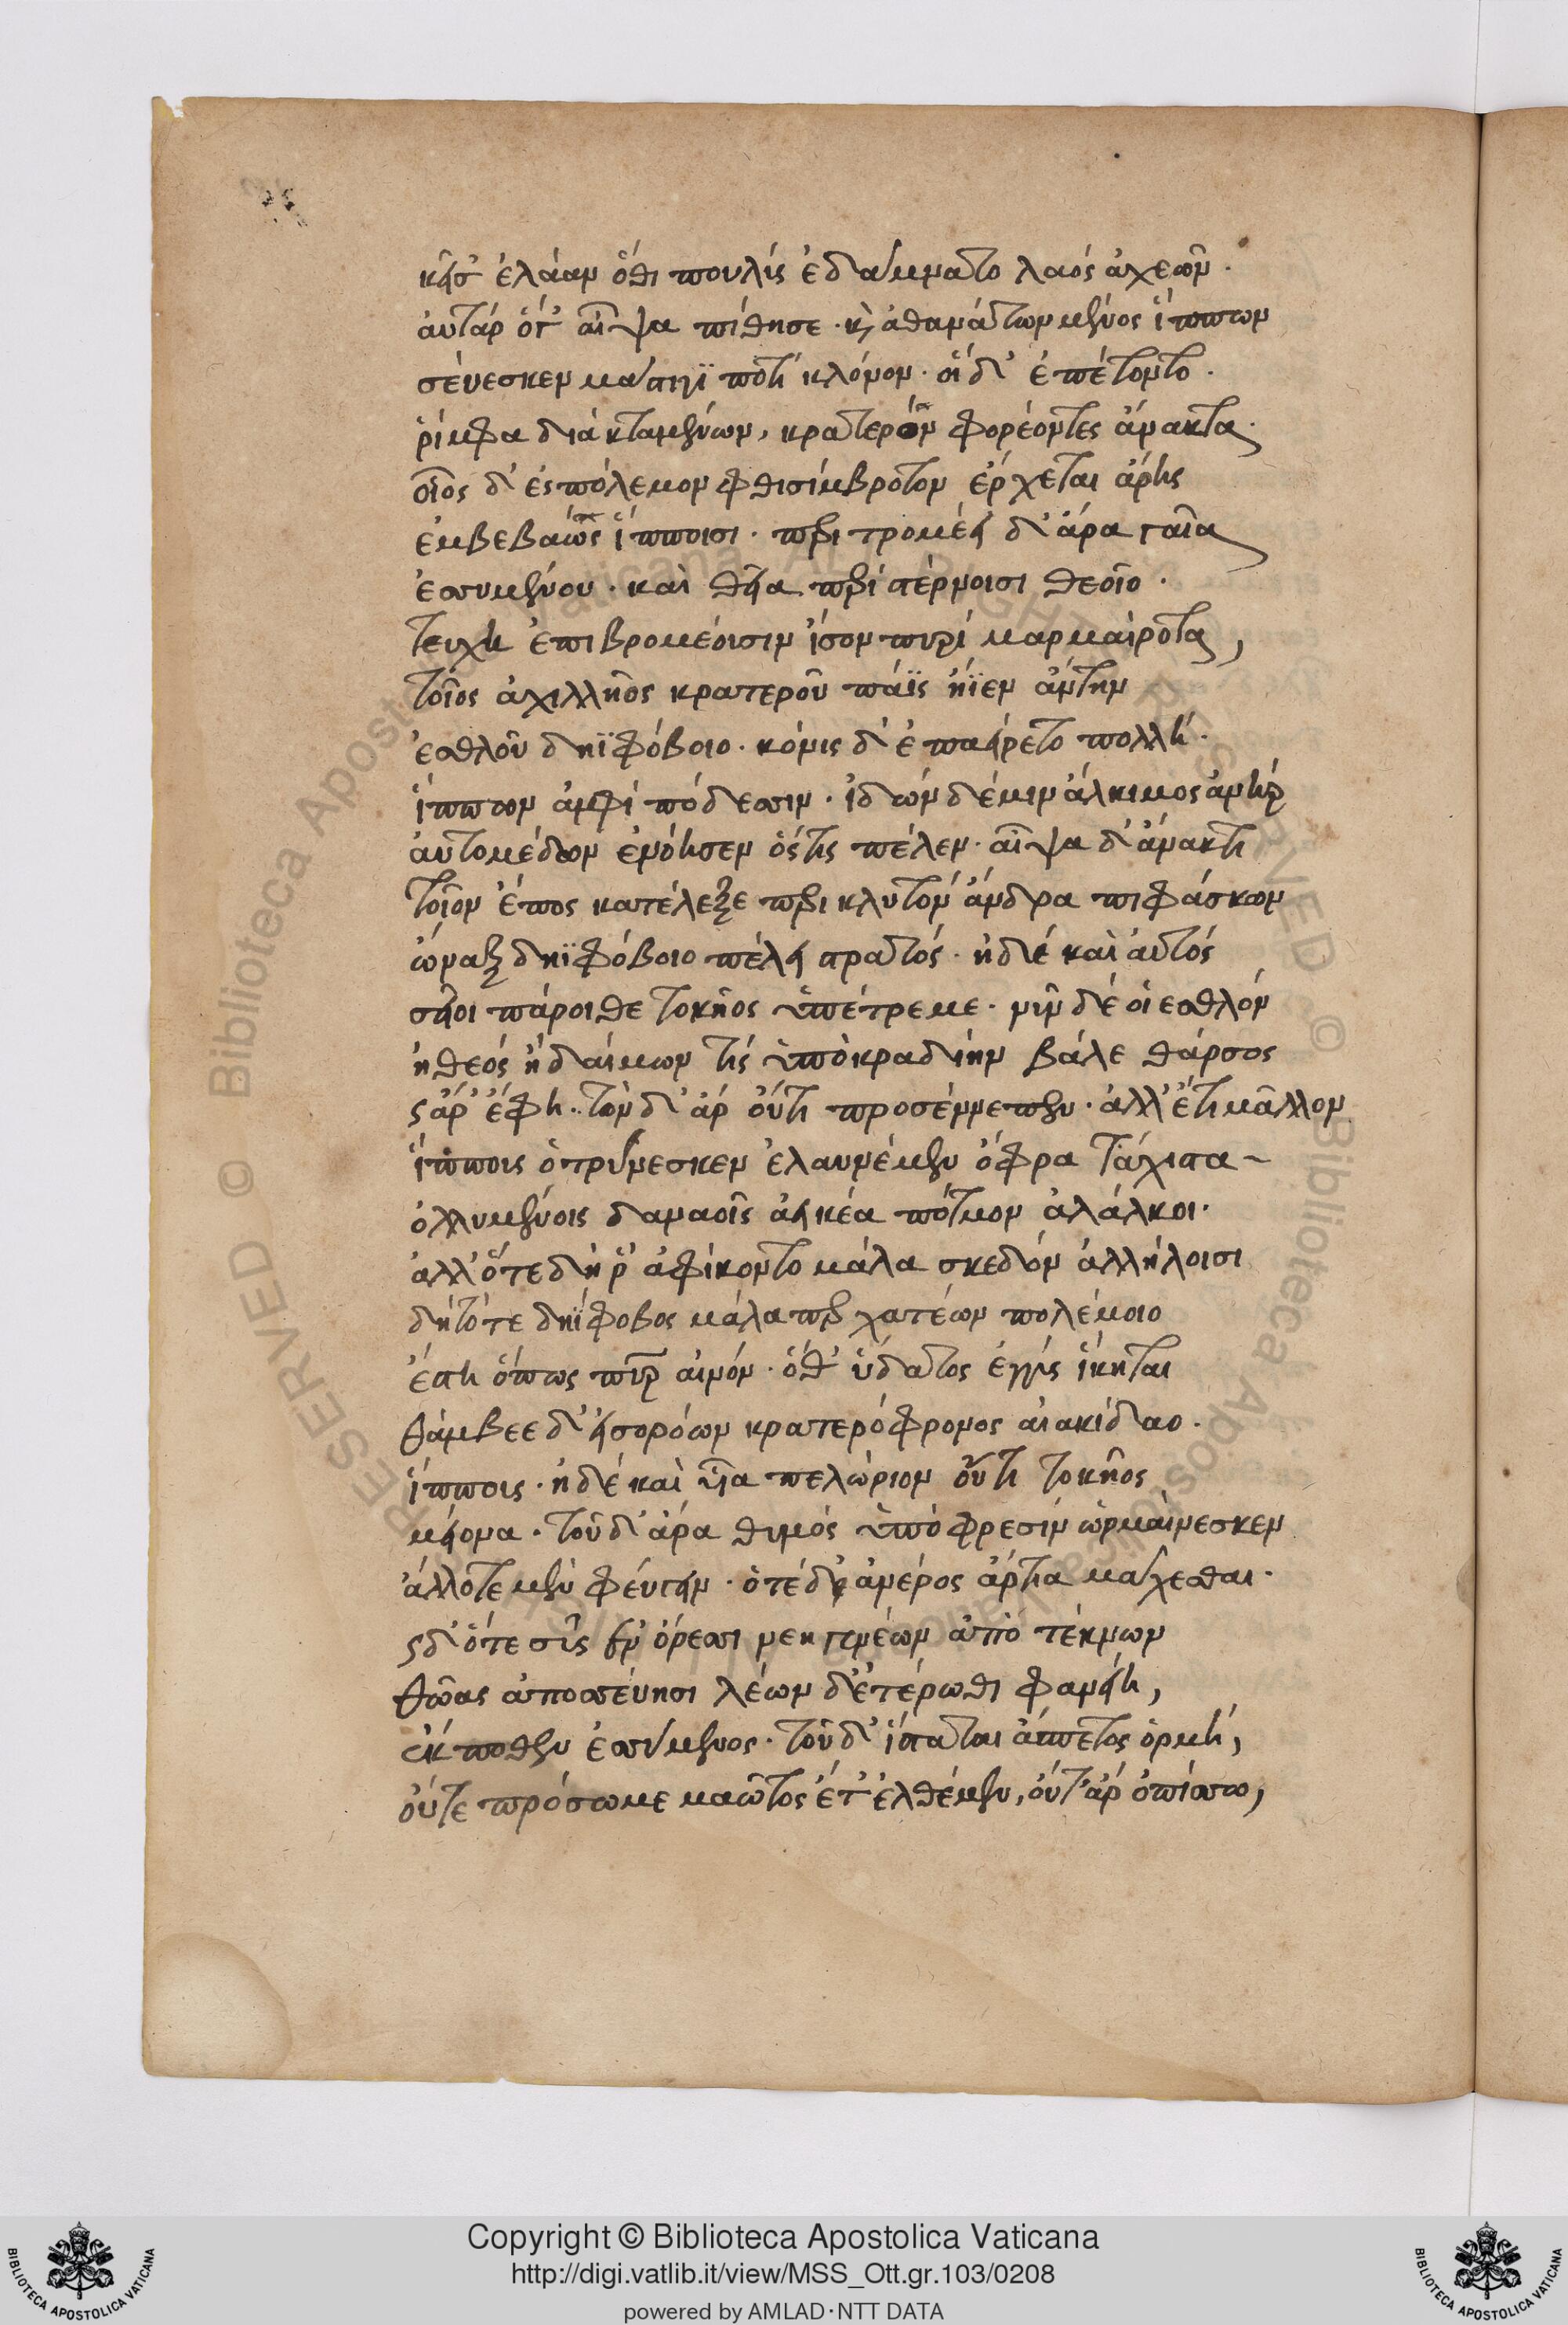 κεῖσ' ἐλάαν ὅθι πουλὺς ἐδάμνατο λαὸς ἀχαιῶν.
αὐτὰρ ὅγ' αἶψα πίθησε. καὶ ἀθανάτων μένος ἵππων
σεύεσκεν μάστιγι ποτὶ κλόνον. οἱ δ' ἐπέτοντο.
ῥίμφα διὰ κταμένων, κρατερὸν φορέοντες ἄνακτα.
οἷος δ' ἐς πόλεμον φθισίμβροτον ἔρχεται ἄρης
ἐμβεβαὼς ἵπποισι. περιτρομέει δ' ἄρα γαῖα
ἐσσυμένου. καὶ θεῖα περὶ στέρνοισι θεοῖο.
τεύχη ἐπιβρομέουσιν ἴσον πυρὶ μαρμαίροντα,
τοῖος ἀχιλλῆος κρατεροῦ πάϊς ἤϊεν ἄντην
ἐσθλοῦ δηϊφόβοιο. κόνις δ' ἐπαείρετο πολλή.
ἵππων ἀμφὶ πόδεσσιν. ἰδὼν δέ μιν ἄλκιμος ἀνὴρ
αὐτομέδων ἐνόησεν ὅστις πέλεν. αἶψα δ' ἄνακτι
τοῖον ἔπος κατέλεξε περικλυτὸν ἄνδρα πιφάσκων
ὦναξ δηϊφόβοιο πέλει στρατός. ἠδὲ καὶ αὐτός
σεῖο πάροιθε τοκῆος ὑπέτρεμε. νῦν δέ οἱ ἐσθλὸν
ἢ θεὸς ἢ δαίμων τις ὑπὸ κραδίην βάλε θάρσος
ὣς ἄρ' ἔφη. τὸν δ' ἄρ οὔτι προσέννεπεν. ἀλλ' ἔτι μᾶλλον
ἵππους ὀτρύνεσκεν ἐλαυνέμεν ὄφρα τάχιστα
ὀλλυμένοις δαναοῖς ἀεικέα πότμον ἀλάλκοι.
ἀλλ' ὅτε δή ῥ' ἀφίκοντο μάλα σχεδὸν ἀλλήλοισι
δὴ τότε δηΐφοβος μάλα περ χατέων πολέμοιο
ἔστη ὅπως πῦρ αἰνόν. ὅθ' ὕδατος ἐγγὺς ἵκηται
θάμβεε δ' εἰσορόων κρατερόφρονος αἰακίδαο.
ἵππους. ἠδὲ καὶ υἷα πελώριον οὔτι τοκῆος
μείονα. τοῦ δ' ἄρα θυμὸς ὑπὸ φρεσὶν ὡρμαίνεσκεν
ἄλλοτε μὲν φεύγειν. ὁτὲ δ' ἀνέρος ἄντια μάχεσθαι.
ὡς δ' ὅτε σῦς ἐν ὄρεσσι νεηγενέων ἀπὸ τέκνων
θῶας ἀποσσεύησι λέων δ' ἑτέρωθι φανείη,
ἔκποθεν ἐσσύμενος. τοῦ δ' ἵσταται ἄσπετος ὁρμή,
οὔτε πρόσω μεμαῶτος ἔτ' ἐλθέμεν, οὔτ' ἂρ ὀπίσσω,
Copyright © Biblioteca Apostolica Vaticana
http://digi.vatlib.it/view/MSS_Ott.gr.103/0208
powered by AMLAD·NTT DATA